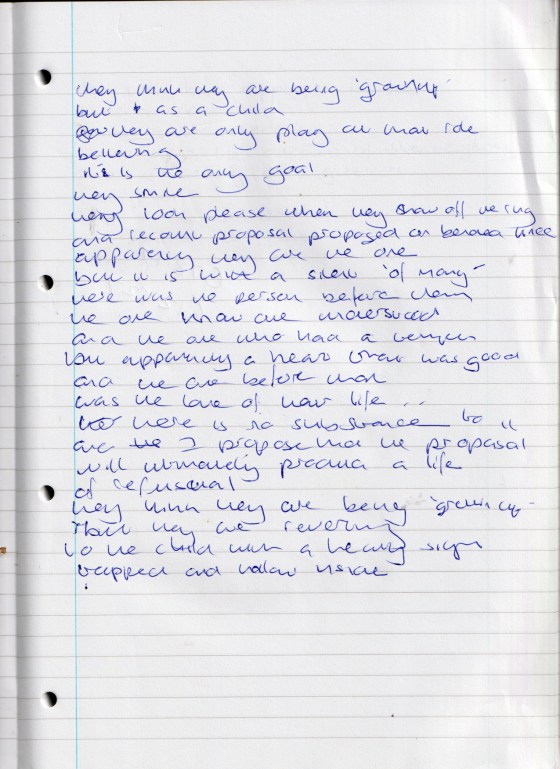 they think they are being 'grownup'
but as a child
they are only play on that ride
believing
this is the only goal
they smile
they look please when they show off the ring
and recount proposal proposed on bended knee
apparently they are the one
but it is a 'of many'
there was the person before them
the one that understood
and the one who had a temper
but apparently a heart that was good
and the one before that
was the love of their life ...
there is no substance to it
and I propose that the proposal
will ultimately produce a life
of refusal
they think they are being 'grown up'
but they are reverting
to the child with a heavy sigh
trapped and hollow inside